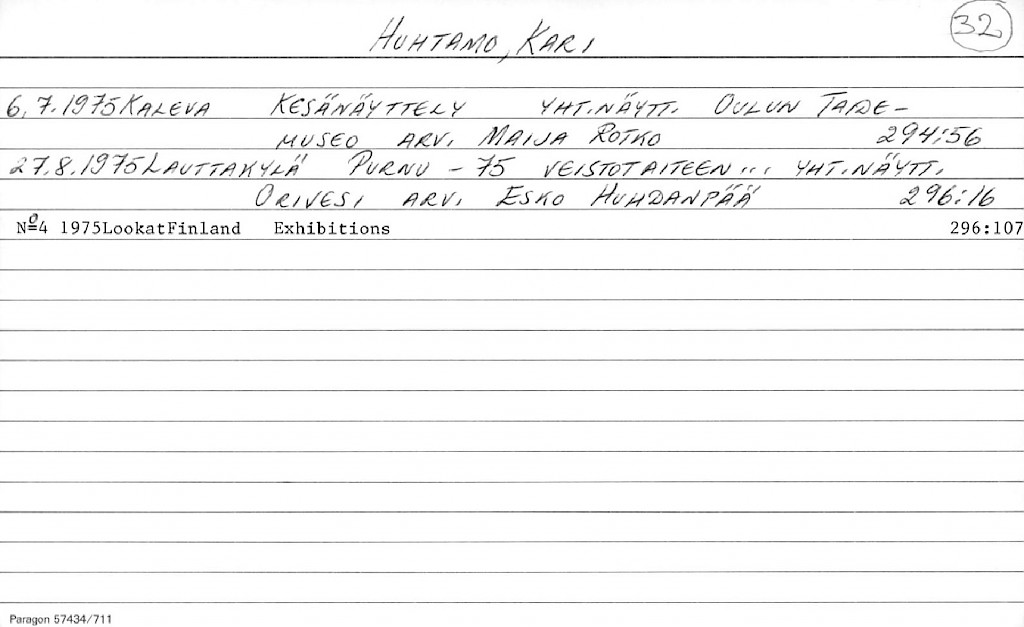 HUHTAMO, KARI 32
6.7.1975 KALEVA KESÄNÄYTTELY YHT.NÄYTT. OULUN TAIDE-
MUSEO ARV. MAIJA ROTKO 294:56
27.8.1975 LAUTTAKYLÄ PURNU - 75 VEISTOTAITEEN ... YHT.NÄYTT.
ORIVESI ARV. ESKO HUHDANPÄÄ 296:16
Nº4 1975LookatFinland Exhibitions 296:107
Paragon 57434/711